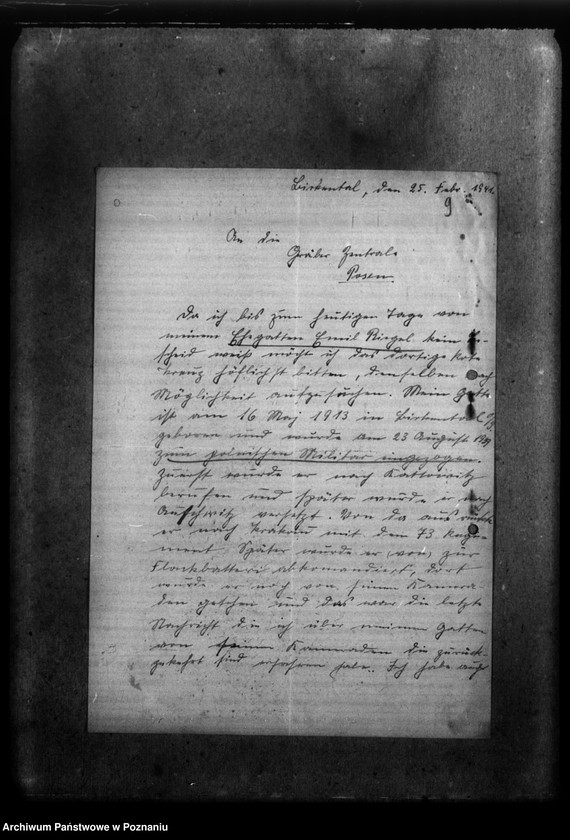 Birkental, den 25. Febr. 1941.
9
An die
Gräber Zentrale
Posen.
Da ich bis zum heutigen Tage von
meinem Ehegatten Emil Riegel kein Be-
scheid weiß möcht ich das dortige Rote
Kreuz höflichst bitten, denselben nach
Möglichkeit aufzusuchen. Mein Gatte
ist am 16 Maj 1913 in Birkental
geboren und wurde am 23 August
zum polnischen Militär eingezogen.
Zuerst wurde er nach Kattowitz
berufen und später wurde er nach
Auschwitz versetzt. Von da aus rückte
er nach Krakau mit dem 73 Regi-
ment Später wurde er von zur
Flackbatterie abkomandiert, dort
wurde er noch von seinen Kamera
den gesehen und das war die letzte
Nachricht die ich über meinen Gatten
von seinen Kammeraden die zurück-
gekehrt sind erfahren habe. Ich habe auch
Archiwum Państwowe w Poznaniu